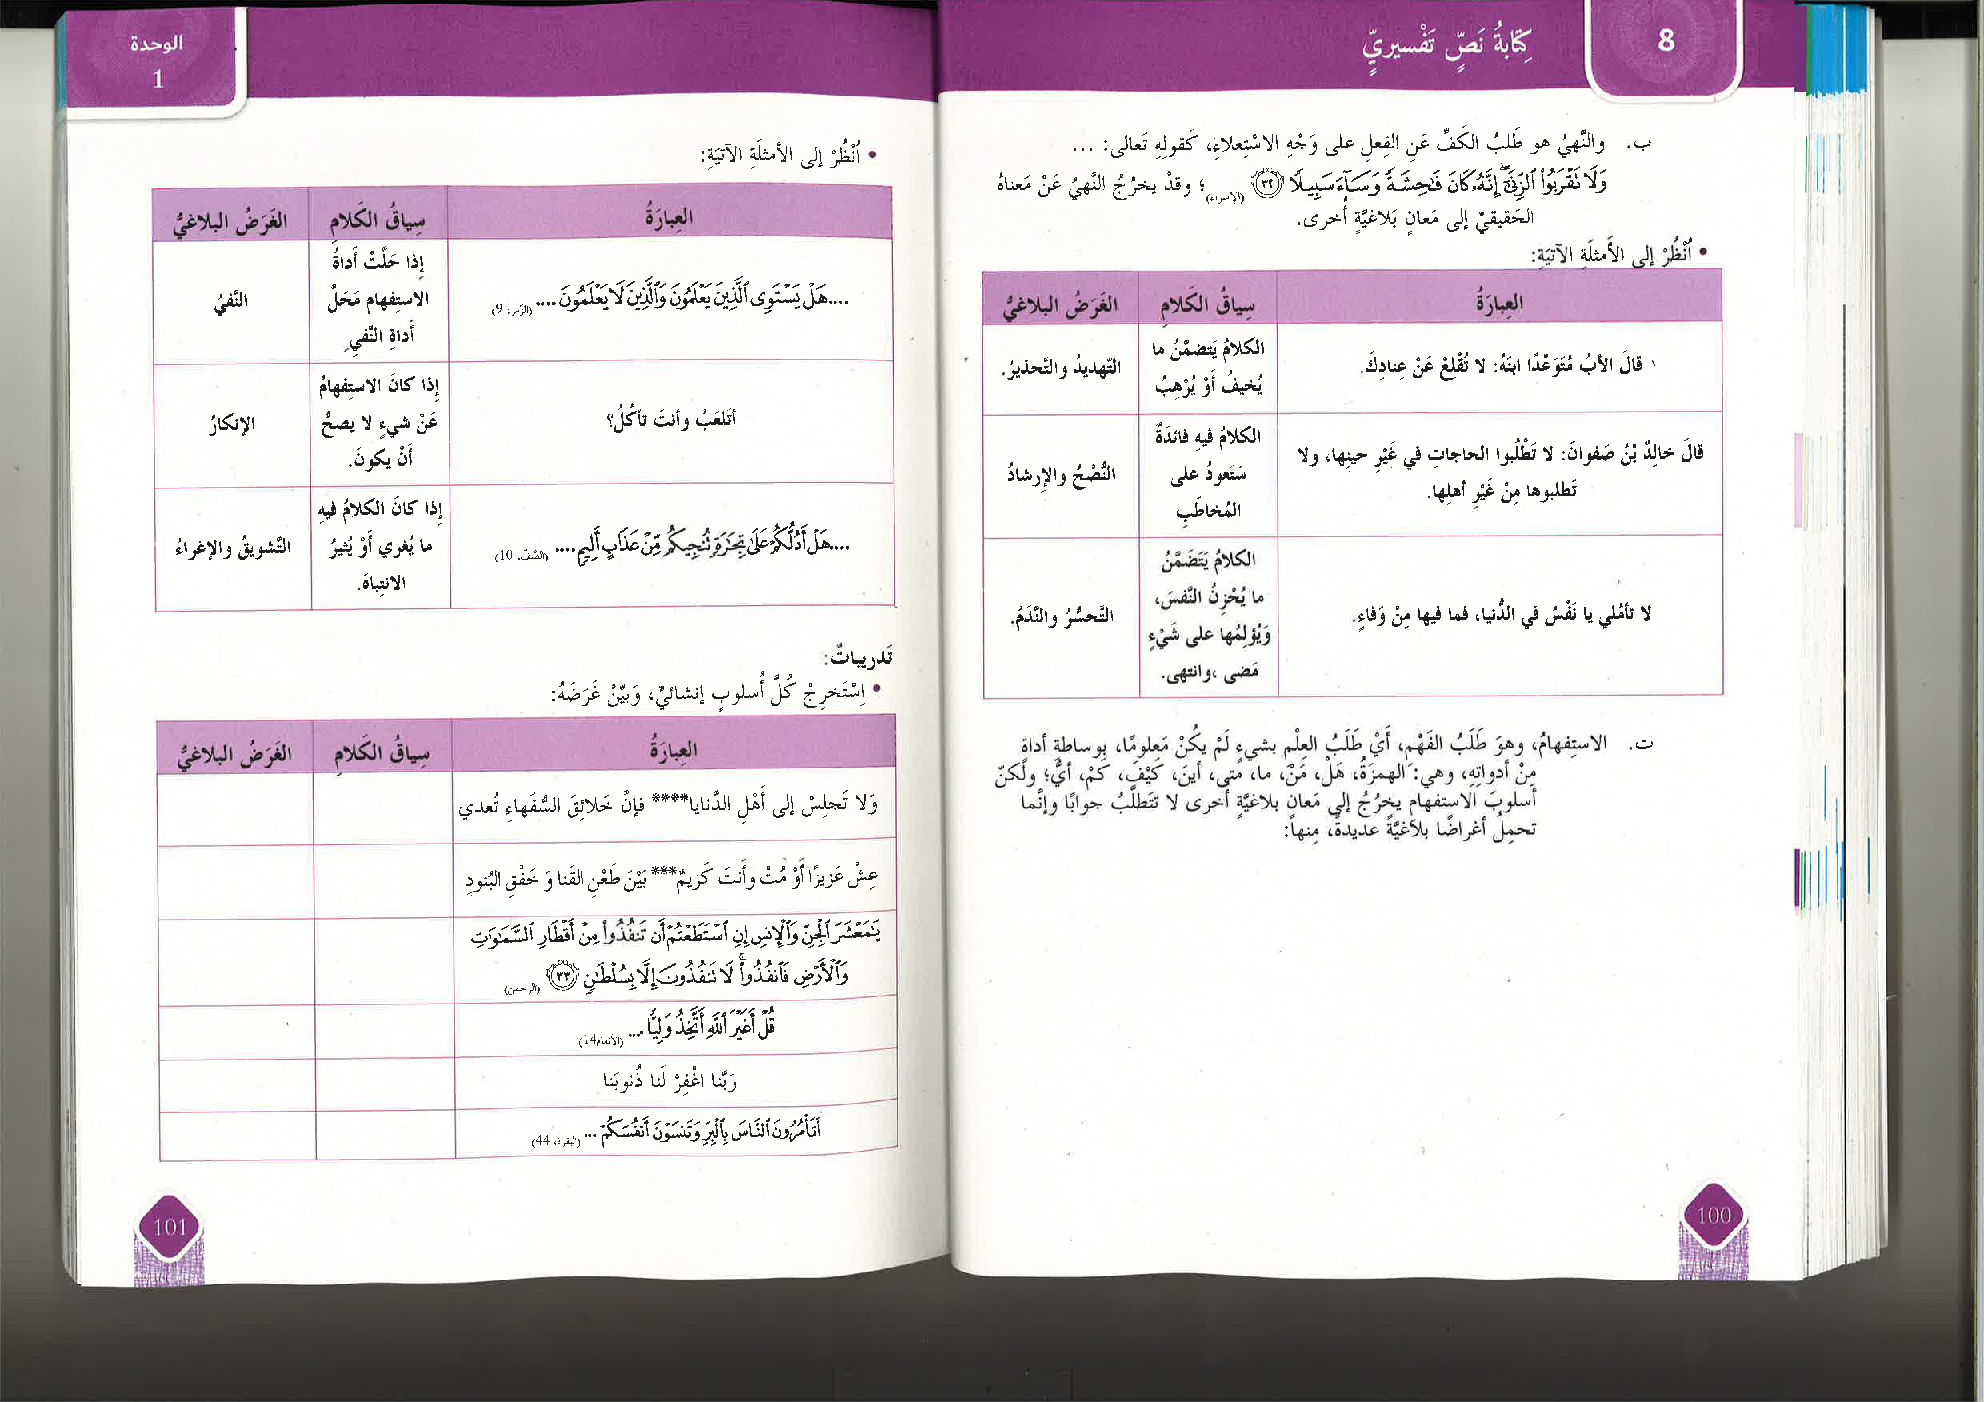 8
كِتابةُ نَصٍّ تَفْسيريٍّ
ب. والنَّهيُ هو طَلبُ الكَفِّ عَنِ الفِعلِ على وَجْهِ الاسْتِعلاءِ، كَقولِهِ تَعالى: ...
وَلَا تَقْرَبُوا۟ ٱلزِّنَىٰٓ ۖ إِنَّهُۥ كَانَ فَـٰحِشَةً وَسَآءَ سَبِيلًا ٣٢ (الإسراء) ؛ وقدْ يخرُجُ النَّهيُ عَنْ مَعناهُ
الحَقيقيِّ إلى مَعانٍ بَلاغيَّةٍ أُخرى.
• اُنْظُرْ إلى الأَمثلَةِ الآتيَةِ:
العِبارَةُ
سِياقُ الكَلامِ
الغَرَضُ البلاغيُّ
١ قالَ الأبُ مُتَوَعِّدًا ابنَهُ: لا تُقْلِعْ عَنْ عِنادِكَ.
الكلامُ يَتضمَّنُ ما
يُخيفُ أَوْ يُرْهِبُ
التَّهديدُ والتَّحذيرُ.
قالَ خالِدُ بْنُ صَفوانَ: لا تَطْلُبوا الحاجاتِ في غَيْرِ حينِها، ولا
تَطلبوها مِنْ غَيْرِ أهلِها.
الكلامُ فيهِ فائدَةٌ
سَتَعودُ على
المُخاطَبِ
النُّصْحُ والإرشادُ
لا تأمُلي يا نَفْسُ في الدُّنيا، فما فيها مِنْ وَفاءٍ.
الكلامُ يَتَضَمَّنُ
ما يُحْزِنُ النَّفسَ،
وَيُؤلِمُها على شَيْءٍ
مَضى ،وانتهى.
التَّحسُّرُ والنَّدَمُ.
ت. الاستِفهامُ، وهوَ طَلَبُ الفَهْمِ، أَيْ طَلَبُ العِلْمِ بشيءٍ لَمْ يكُنْ مَعلومًا، بِوساطةِ أداةٍ
مِنْ أدواتِهِ، وهي: الهمزَةُ، هَلْ، مَنْ، ما، متى، أينَ، كَيْفَ، كَمْ، أيُّ؛ ولكنّ
أسلوبَ الاستفهامِ يخرُجُ إلى مَعانٍ بلاغيَّةٍ أُخرى لا تتَطلَّبُ جوابًا وإنَّما
تحمِلُ أغراضًا بلاغيَّةً عديدةً، مِنها:
100
الوحدة
1
• اُنْظُرْ إلى الأمثلَةِ الآتيَةِ:
العِبارَةُ
سِياقُ الكَلامِ
الغَرَضُ البلاغيُّ
....هَلْ يَسْتَوِى ٱلَّذِينَ يَعْلَمُونَ وَٱلَّذِينَ لَا يَعْلَمُونَ.... (الزمر، 9)
إذا حَلَّتْ أداةُ
الاستِفهامِ مَحَلَّ
أَداةِ النَّفيِ.
النَّفيُ
أتَلعَبُ وأنتَ تأكُلُ؟
إذا كانَ الاستِفهامُ
عَنْ شيءٍ لا يصحُّ
أَنْ يكونَ.
الإنكارُ
....هَلْ أَدُلُّكُمْ عَلَىٰ تِجَـٰرَةٍ تُنجِيكُم مِّنْ عَذَابٍ أَلِيمٍ.... (الصّف، 10)
إذا كانَ الكلامُ فيهِ
ما يُغري أَوْ يُثيرُ
الانتِباهَ.
التَّشويقُ والإغراءُ
تَدريباتٌ:
• اِسْتَخرِجْ كُلَّ أُسلوبٍ إنشائيٍّ، وَبَيِّنْ غَرَضَهُ:
العِبارَةُ
سِياقُ الكَلامِ
الغَرَضُ البلاغيُّ
وَلا تَجلِسْ إلى أَهْلِ الدَّنايا**** فإنَّ خَلائِقَ السُّفَهاءِ تُعدي
عِشْ عَزيزًا أَوْ مُتْ وأَنتَ كَريمٌ*** بَيْنَ طَعْنِ القَنا وَ خَفْقِ البُنودِ
يَـٰمَعْشَرَ ٱلْجِنِّ وَٱلْإِنسِ إِنِ ٱسْتَطَعْتُمْ أَن تَنفُذُوا۟ مِنْ أَقْطَارِ ٱلسَّمَـٰوَٰتِ
وَٱلْأَرْضِ فَٱنفُذُوا۟ ۚ لَا تَنفُذُونَ إِلَّا بِسُلْطَـٰنٍ ٣٣ (الرحمن)
قُلْ أَغَيْرَ ٱللَّهِ أَتَّخِذُ وَلِيًّا ... (الأنعام14)
رَبَّنا اغْفِرْ لَنا ذُنوبَنا
أَتَأْمُرُونَ ٱلنَّاسَ بِٱلْبِرِّ وَتَنسَوْنَ أَنفُسَكُمْ ... (البقرة، 44)
101